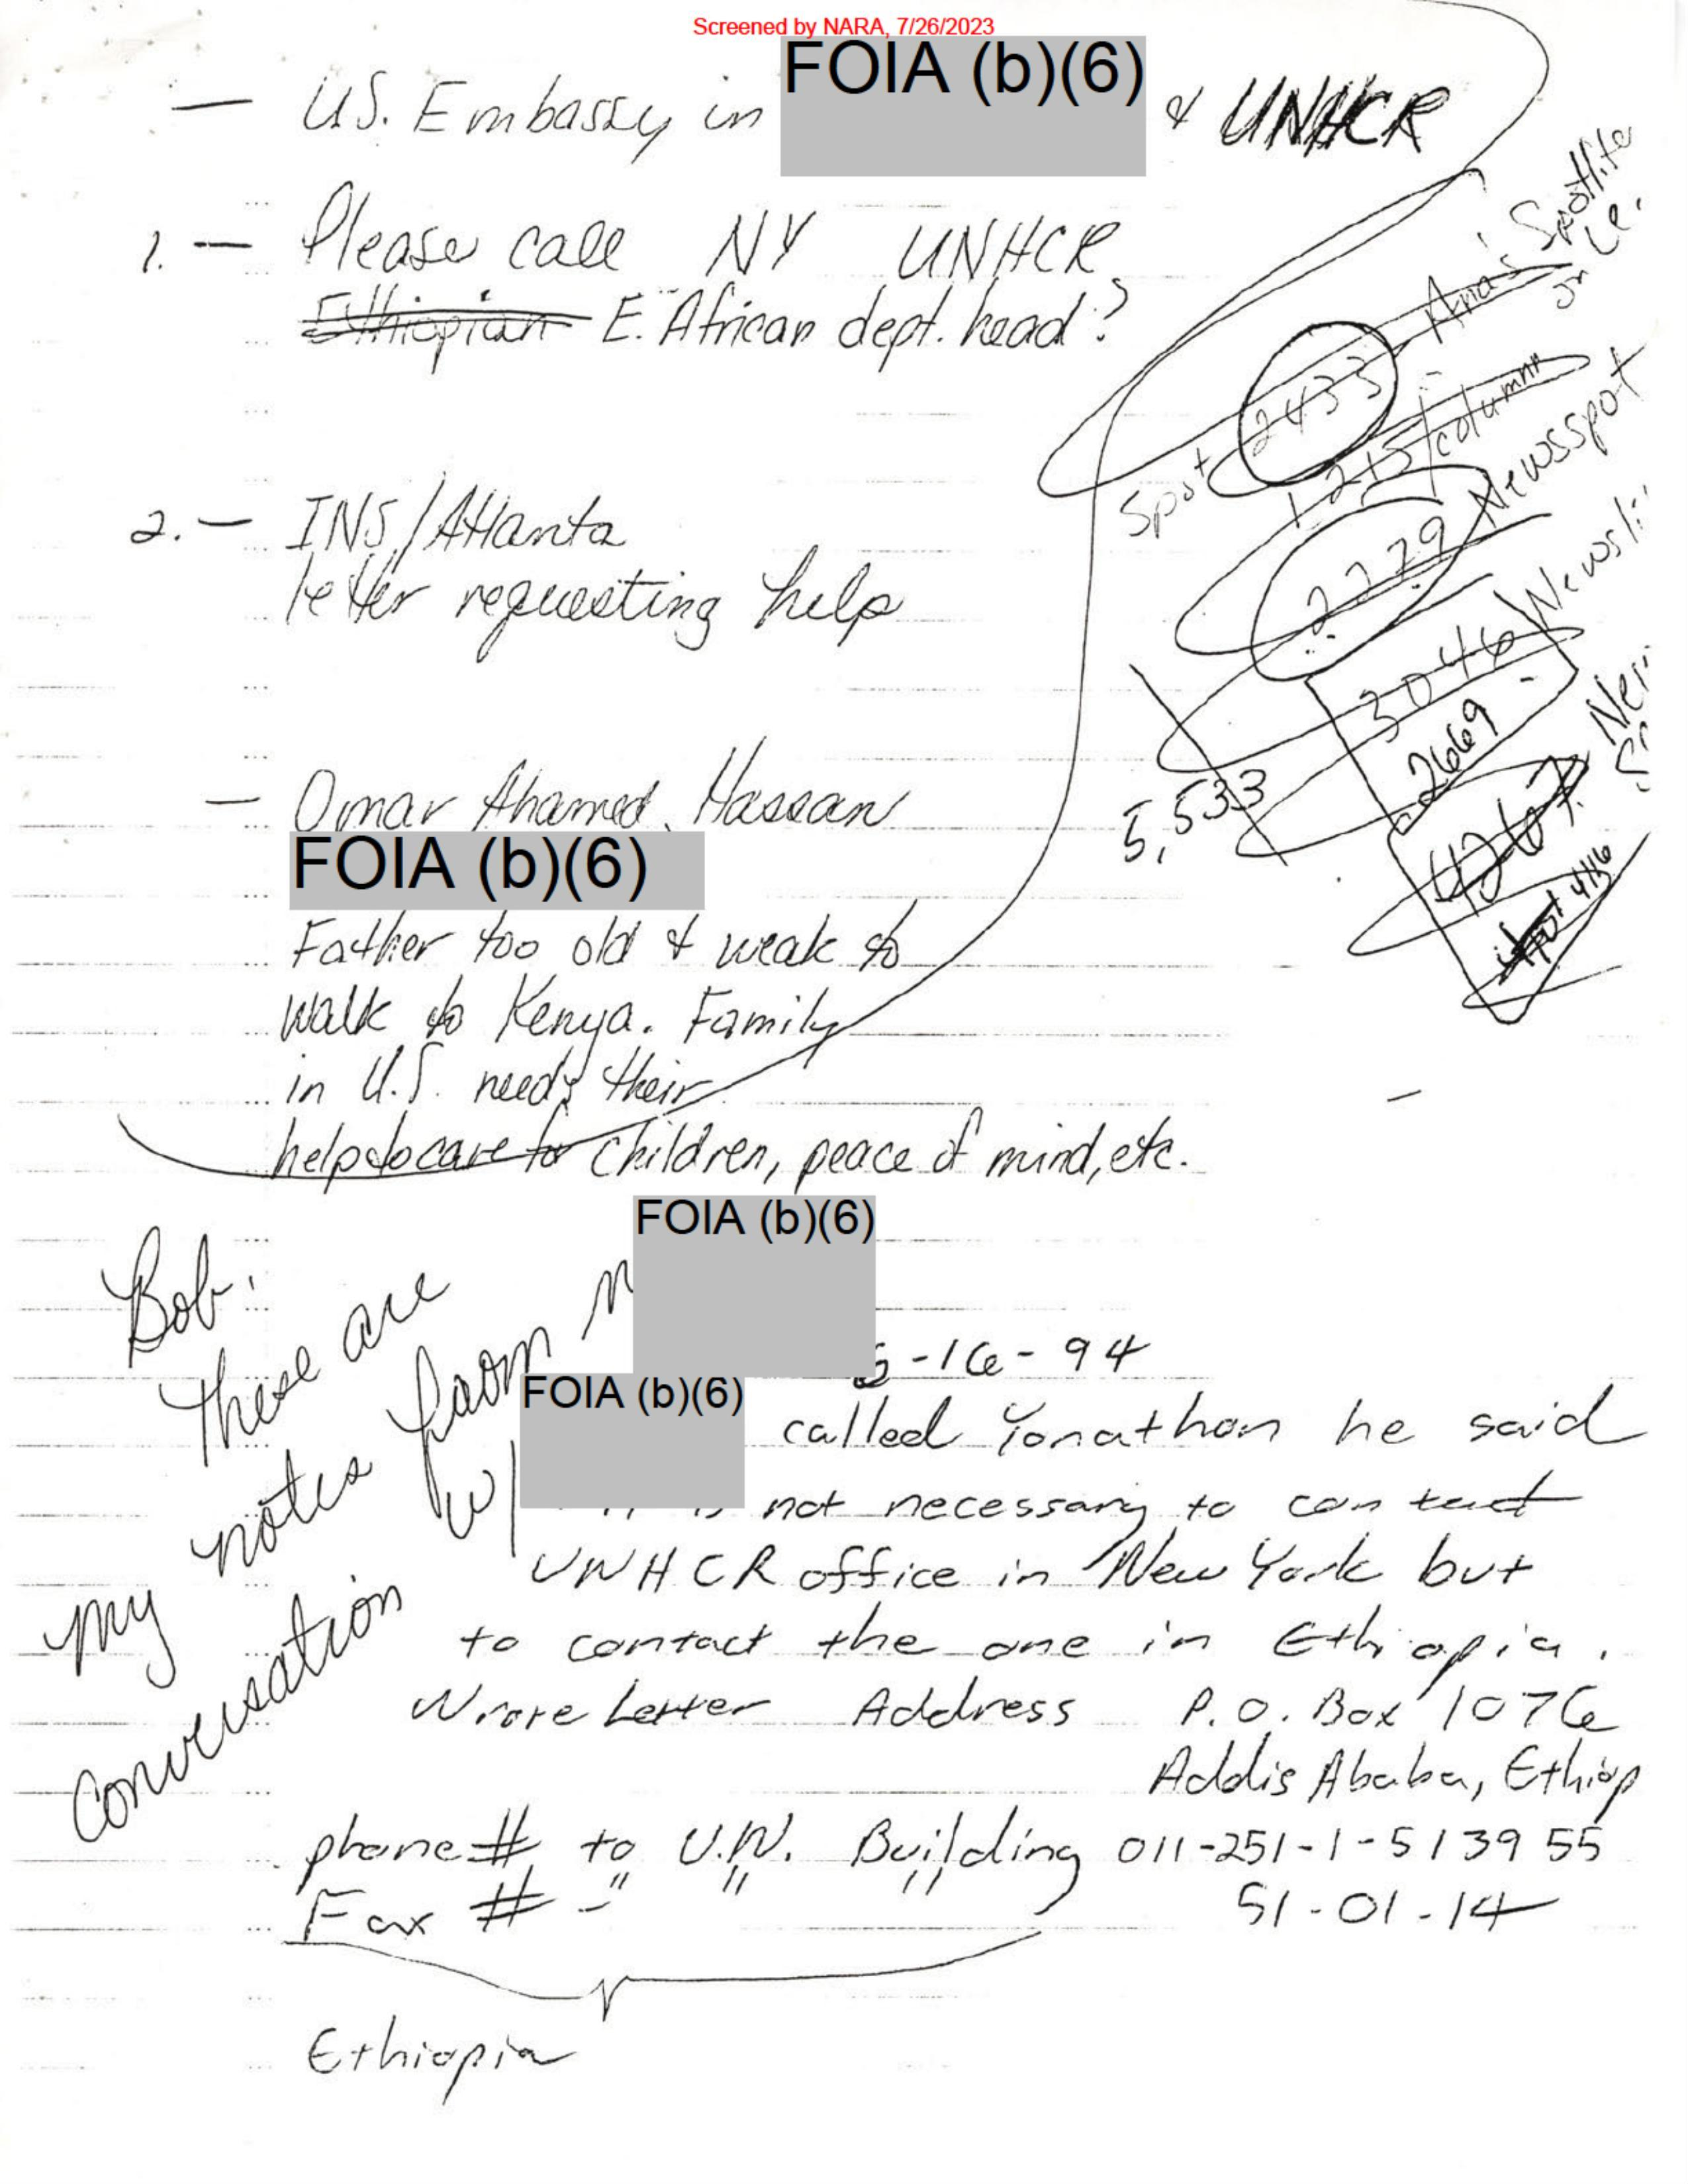 Screened by NARA, 7/26/2023
— U.S. Embassy in FOIA (b)(6) & UNHCR
1. — Please call NY UNHCR
Ethiopian E. African dept. head?
2. — INS/Atlanta
letter requesting help
— Omar Ahamed Hassan
FOIA (b)(6)
Father too old & weak to
walk to Kenya. Family
in U.S. needs their
help to care for children, peace of mind, etc.
Spotlite
Spot 2433
1215/column
2279 Newsspot
3046
2669
5,533
4267
416
Bob:
These are
my notes from
FOIA (b)(6)
conversation w/
FOIA (b)(6)
-16-94
called Yonathan he said
not necessary to contact
UNHCR office in New York but
to contact the one in Ethiopia.
Wrote Letter Address P.O. Box 1076
Addis Ababa, Ethiop
phone # to U.N. Building 011-251-1-513955
Fax # - " " " 51-01-14
Ethiopia